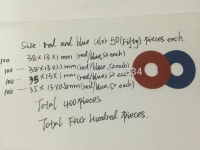 Size: red and blue color 50 (Fifty) pieces each.
100 — 38×13×1mm (red/blue, 50 each)
100 — 38×13×1.5mm (red/blue, 50 each)
100 — 35×13×1mm (red/blue, 50 each)
100 — 35×13×0.50mm (red/blue, 50 each)
Total 400 pieces
Total Four hundred pieces.